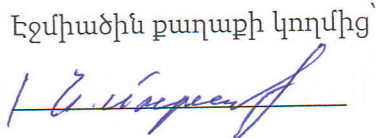 Էջմիածին քաղաքի կողմից՝